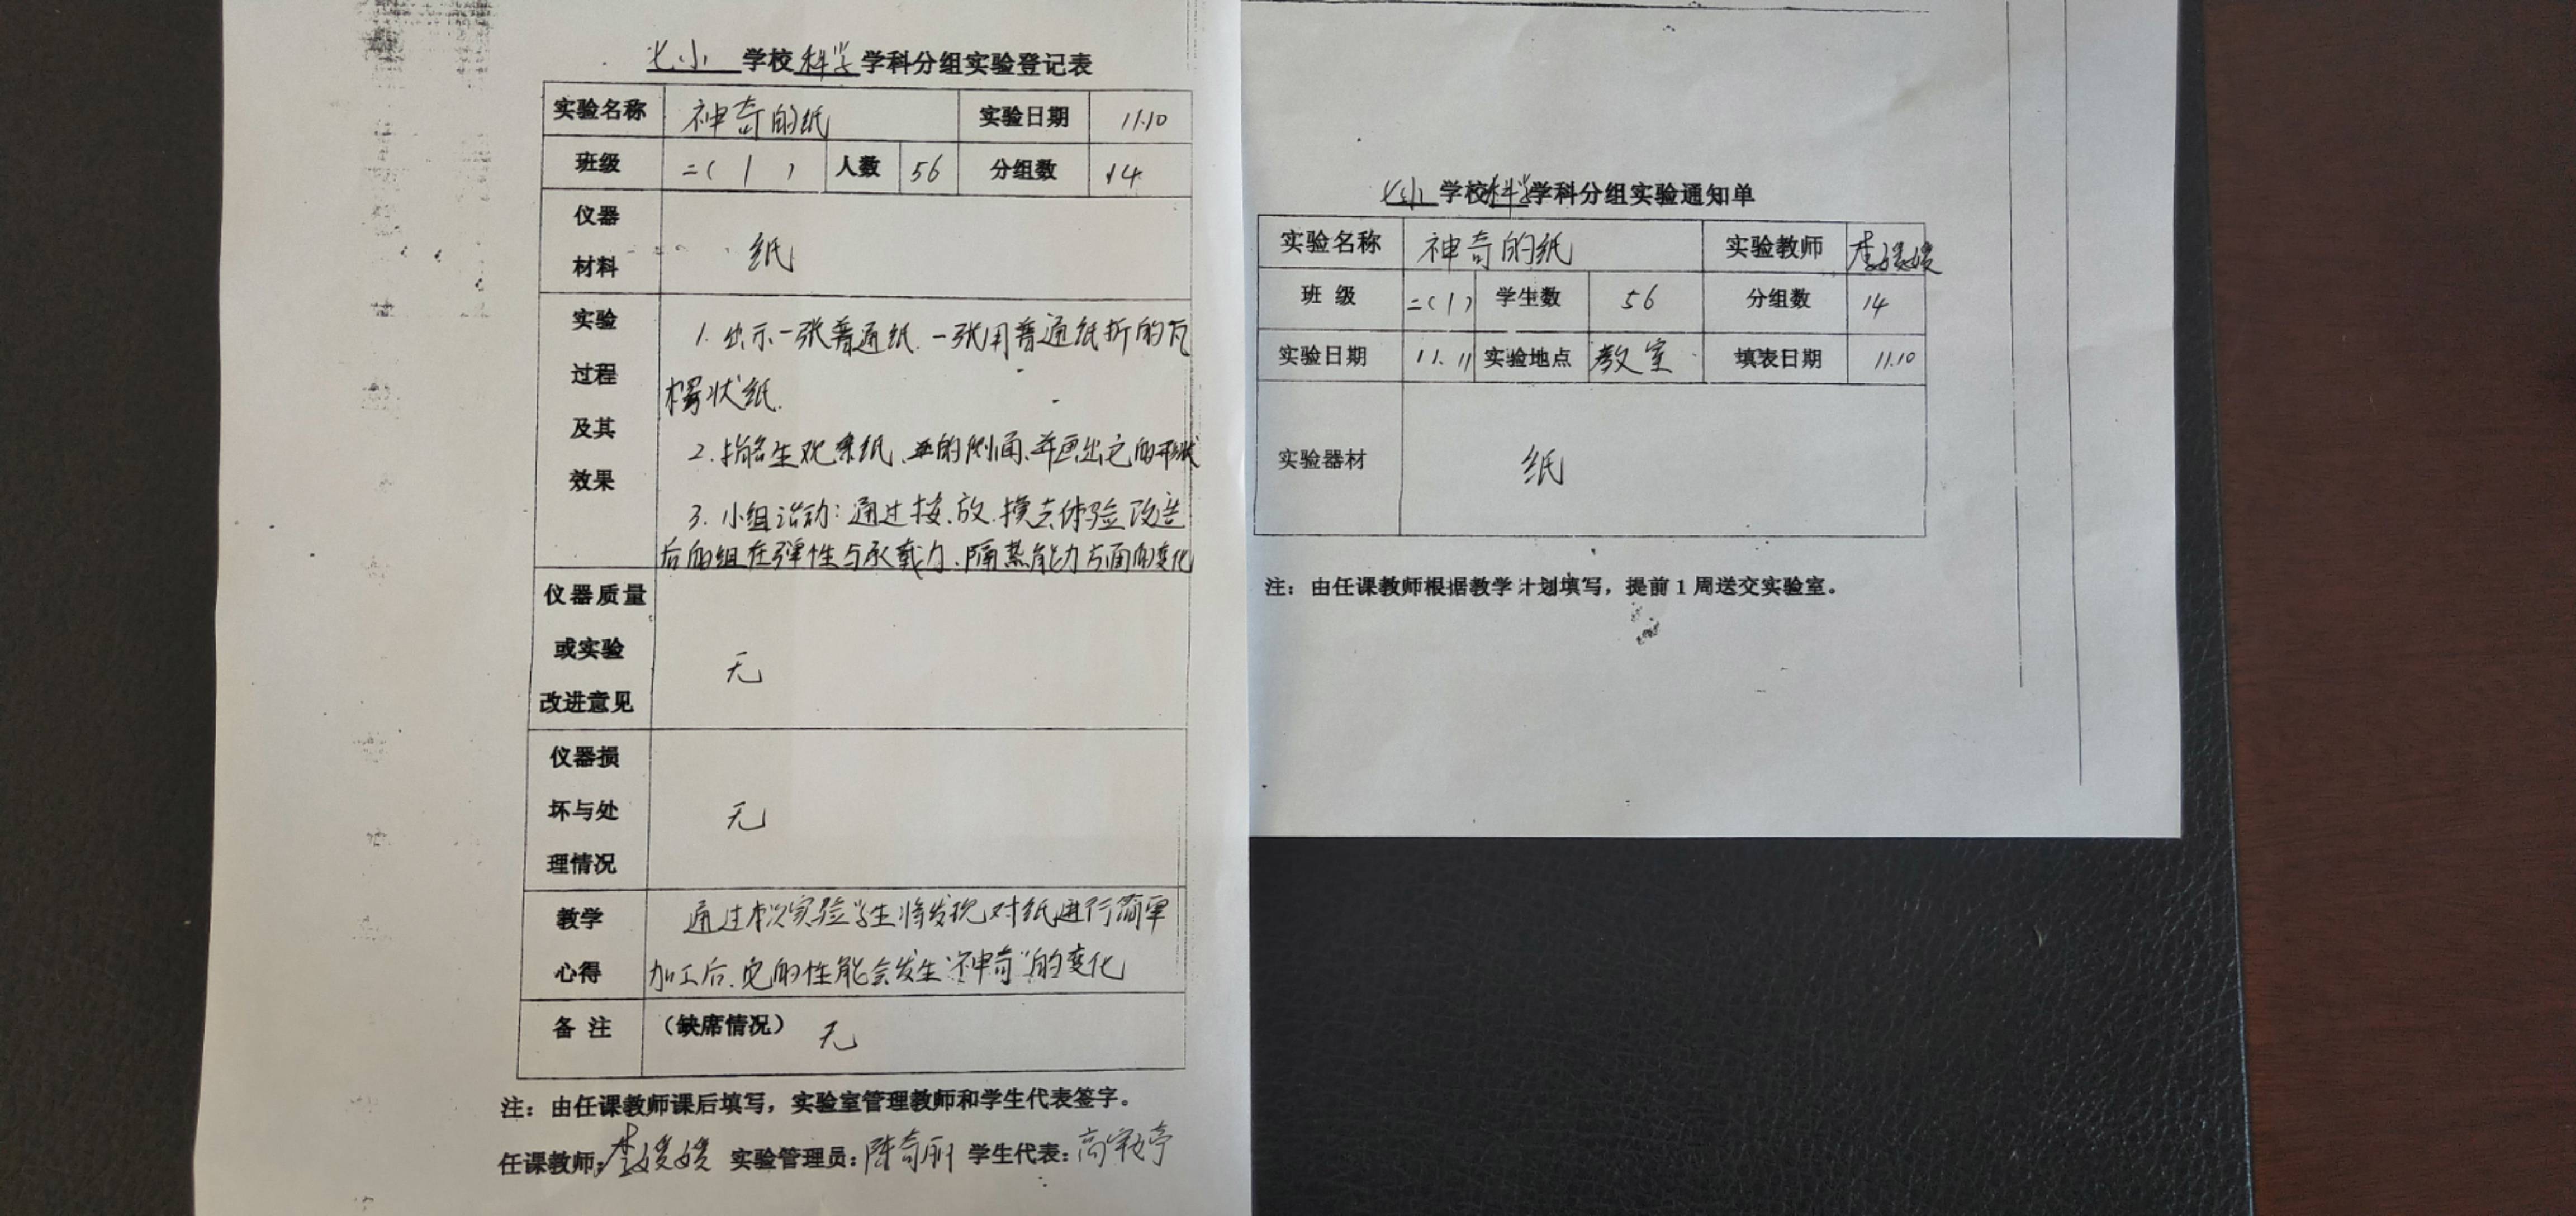 七小 学校 科学 学科分组实验登记表
实验名称 神奇的纸 实验日期 11.10
班级 二(1) 人数 56 分组数 14
仪器材料 纸
实验过程及其效果
1. 出示一张普通纸.一张用普通纸折的瓦
楞状纸.
2. 指名生观察纸、的侧面,并画出它的形状
3. 小组活动:通过按、放、摸去体验改造
后的组在弹性与承载力、隔热能力方面的变化
仪器质量或实验改进意见 无
仪器损坏与处理情况 无
教学心得
通过本次实验学生将发现对纸进行简单
加工后.它的性能会发生“神奇”的变化
备注 (缺席情况) 无
注:由任课教师课后填写,实验室管理教师和学生代表签字。
任课教师:李媛媛 实验管理员:陈奇丽 学生代表:高
七小 学校 科学 学科分组实验通知单
实验名称 神奇的纸 实验教师 李媛媛
班级 二(1) 学生数 56 分组数 14
实验日期 11.11 实验地点 教室 填表日期 11.10
实验器材 纸
注:由任课教师根据教学计划填写,提前1周送交实验室。